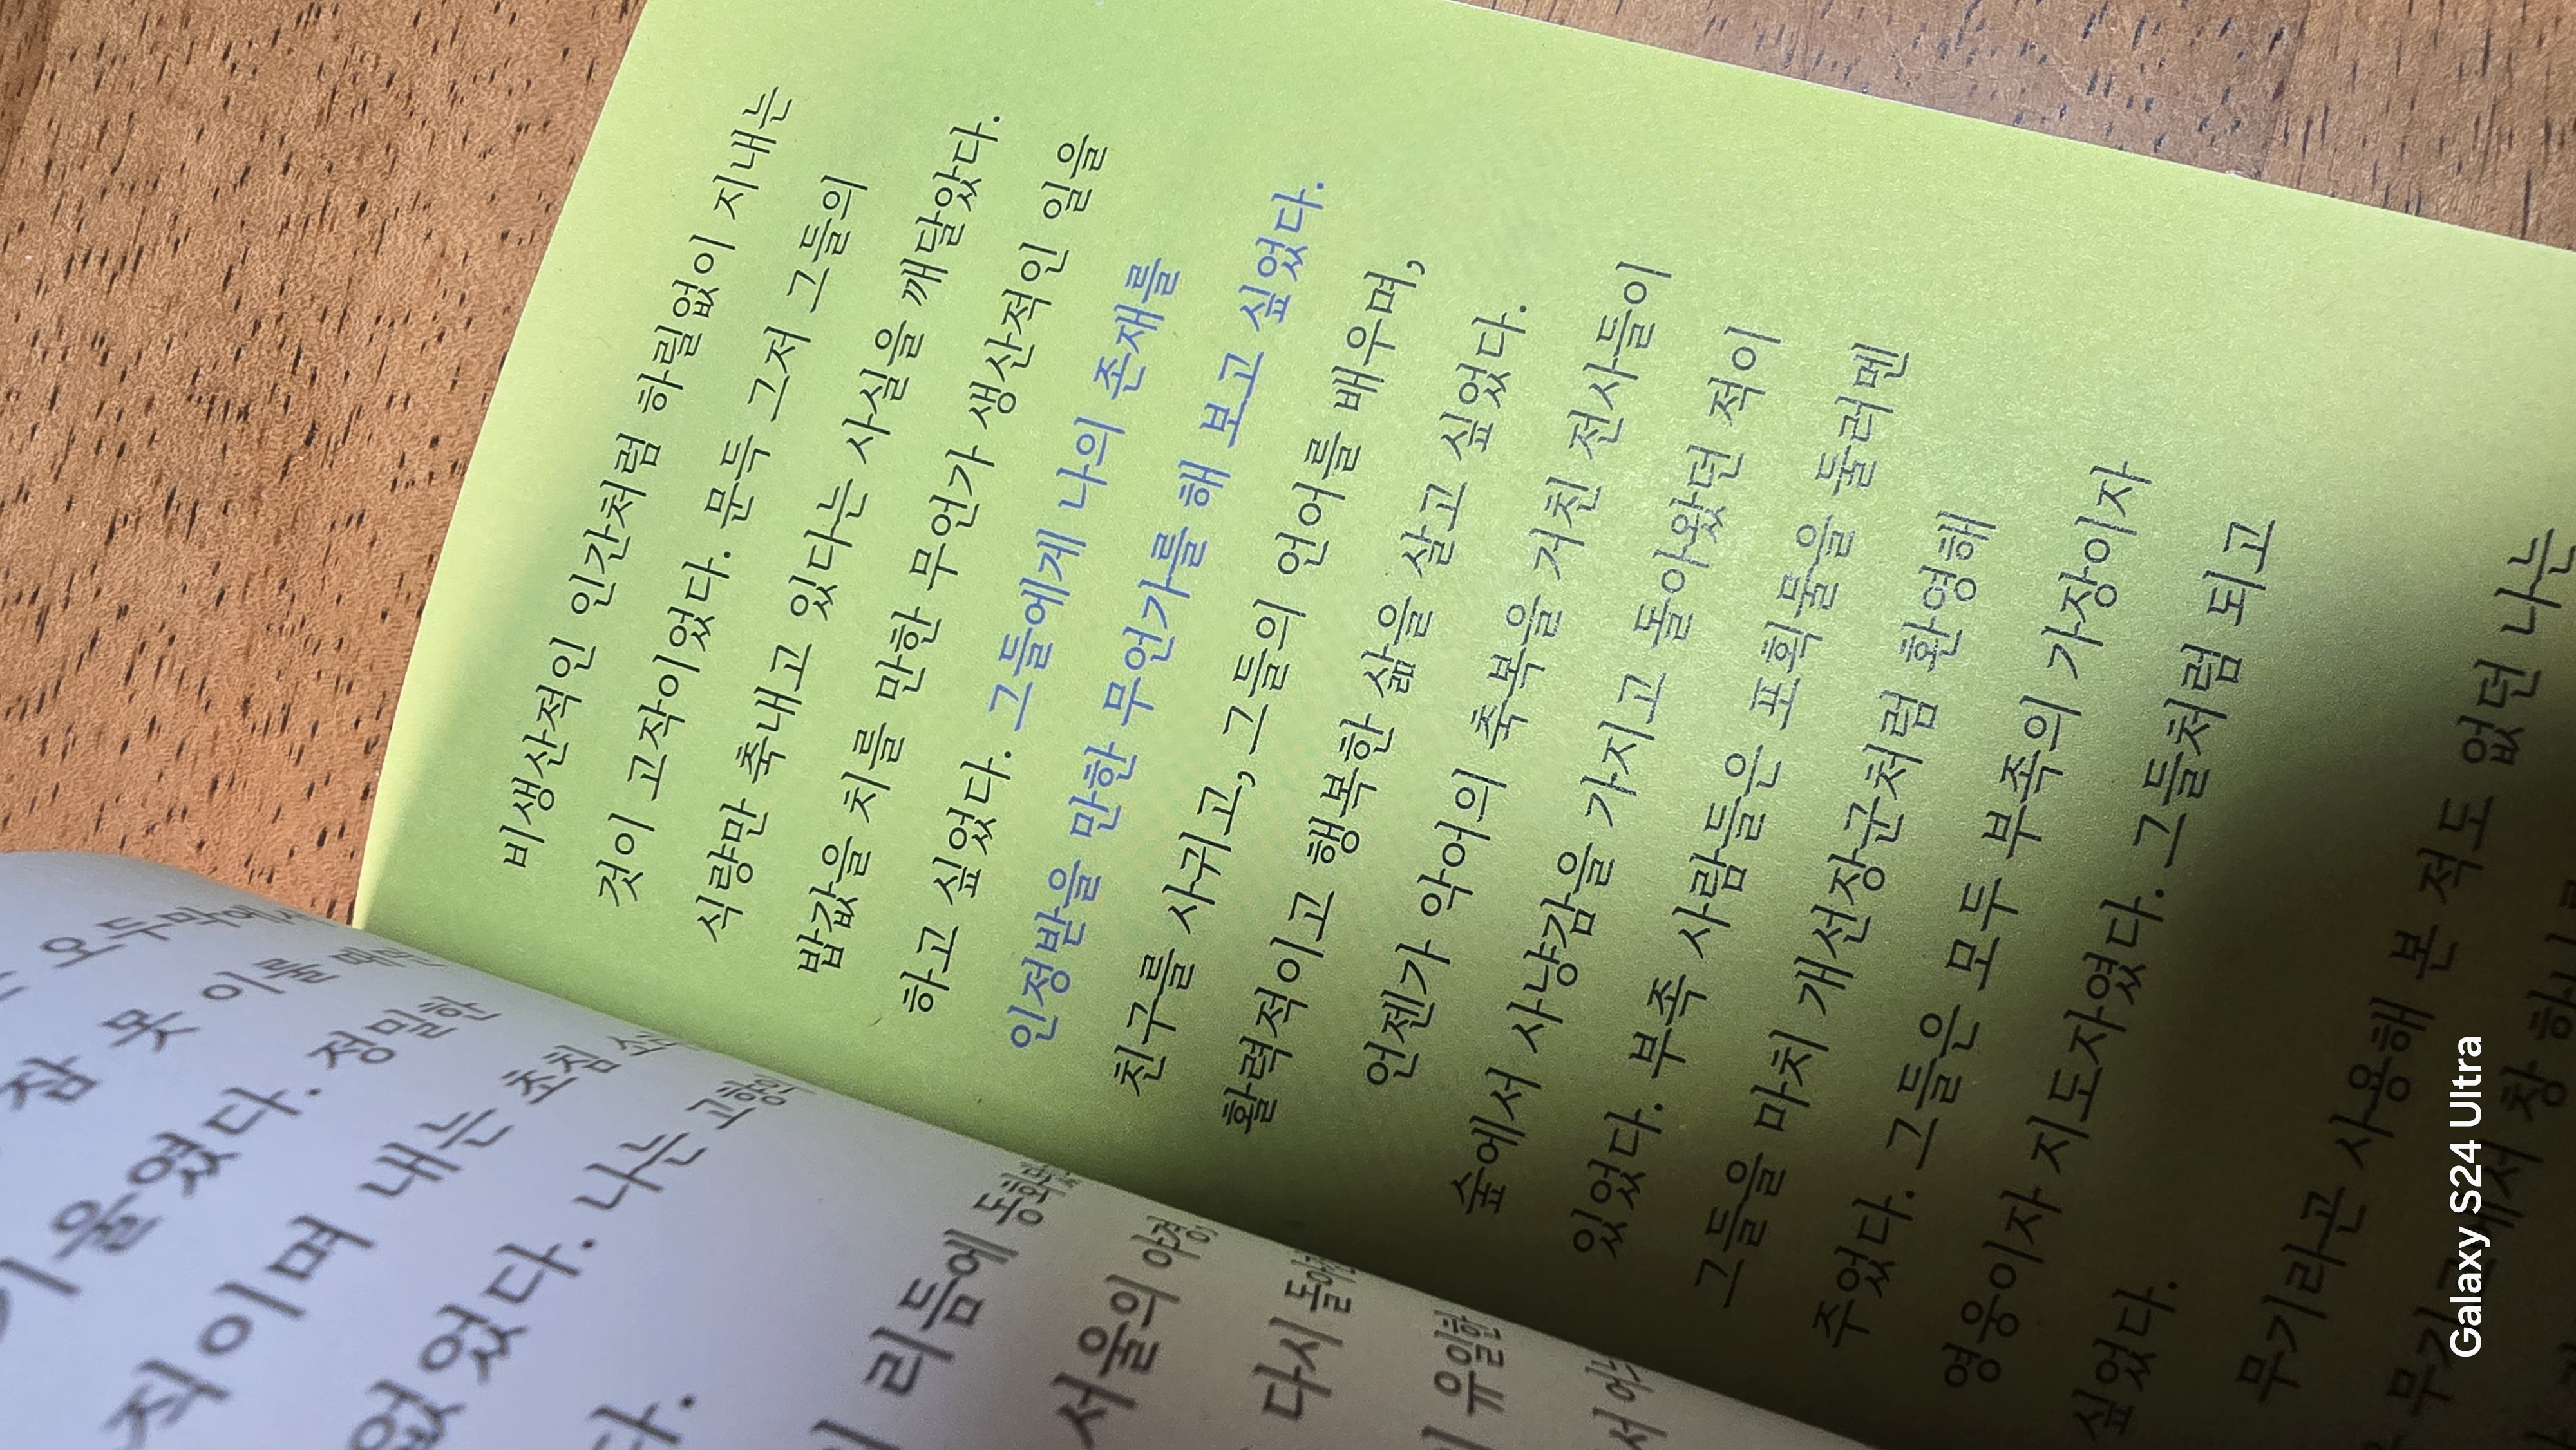 오두막에서
잠 못 이룰 때면
기울였다. 정밀한
직이며 내는 초침 소리
없었다. 나는 고향의
다.
리듬에 동화
서울의 야경
다시 돌아
유일한
서 어느
비생산적인 인간처럼 하릴없이 지내는
것이 고작이었다. 문득 그저 그들의
식량만 축내고 있다는 사실을 깨달았다.
밥값을 치를 만한 무언가 생산적인 일을
하고 싶었다. 그들에게 나의 존재를
인정받을 만한 무언가를 해 보고 싶었다.
친구를 사귀고, 그들의 언어를 배우며,
활력적이고 행복한 삶을 살고 싶었다.
언젠가 악어의 축복을 거친 전사들이
숲에서 사냥감을 가지고 돌아왔던 적이
있었다. 부족 사람들은 포획물을 둘러멘
그들을 마치 개선장군처럼 환영해
주었다. 그들은 모두 부족의 가장이자
영웅이자 지도자였다. 그들처럼 되고
싶었다.
무기라곤 사용해 본 적도 없던 나는
Galaxy S24 Ultra